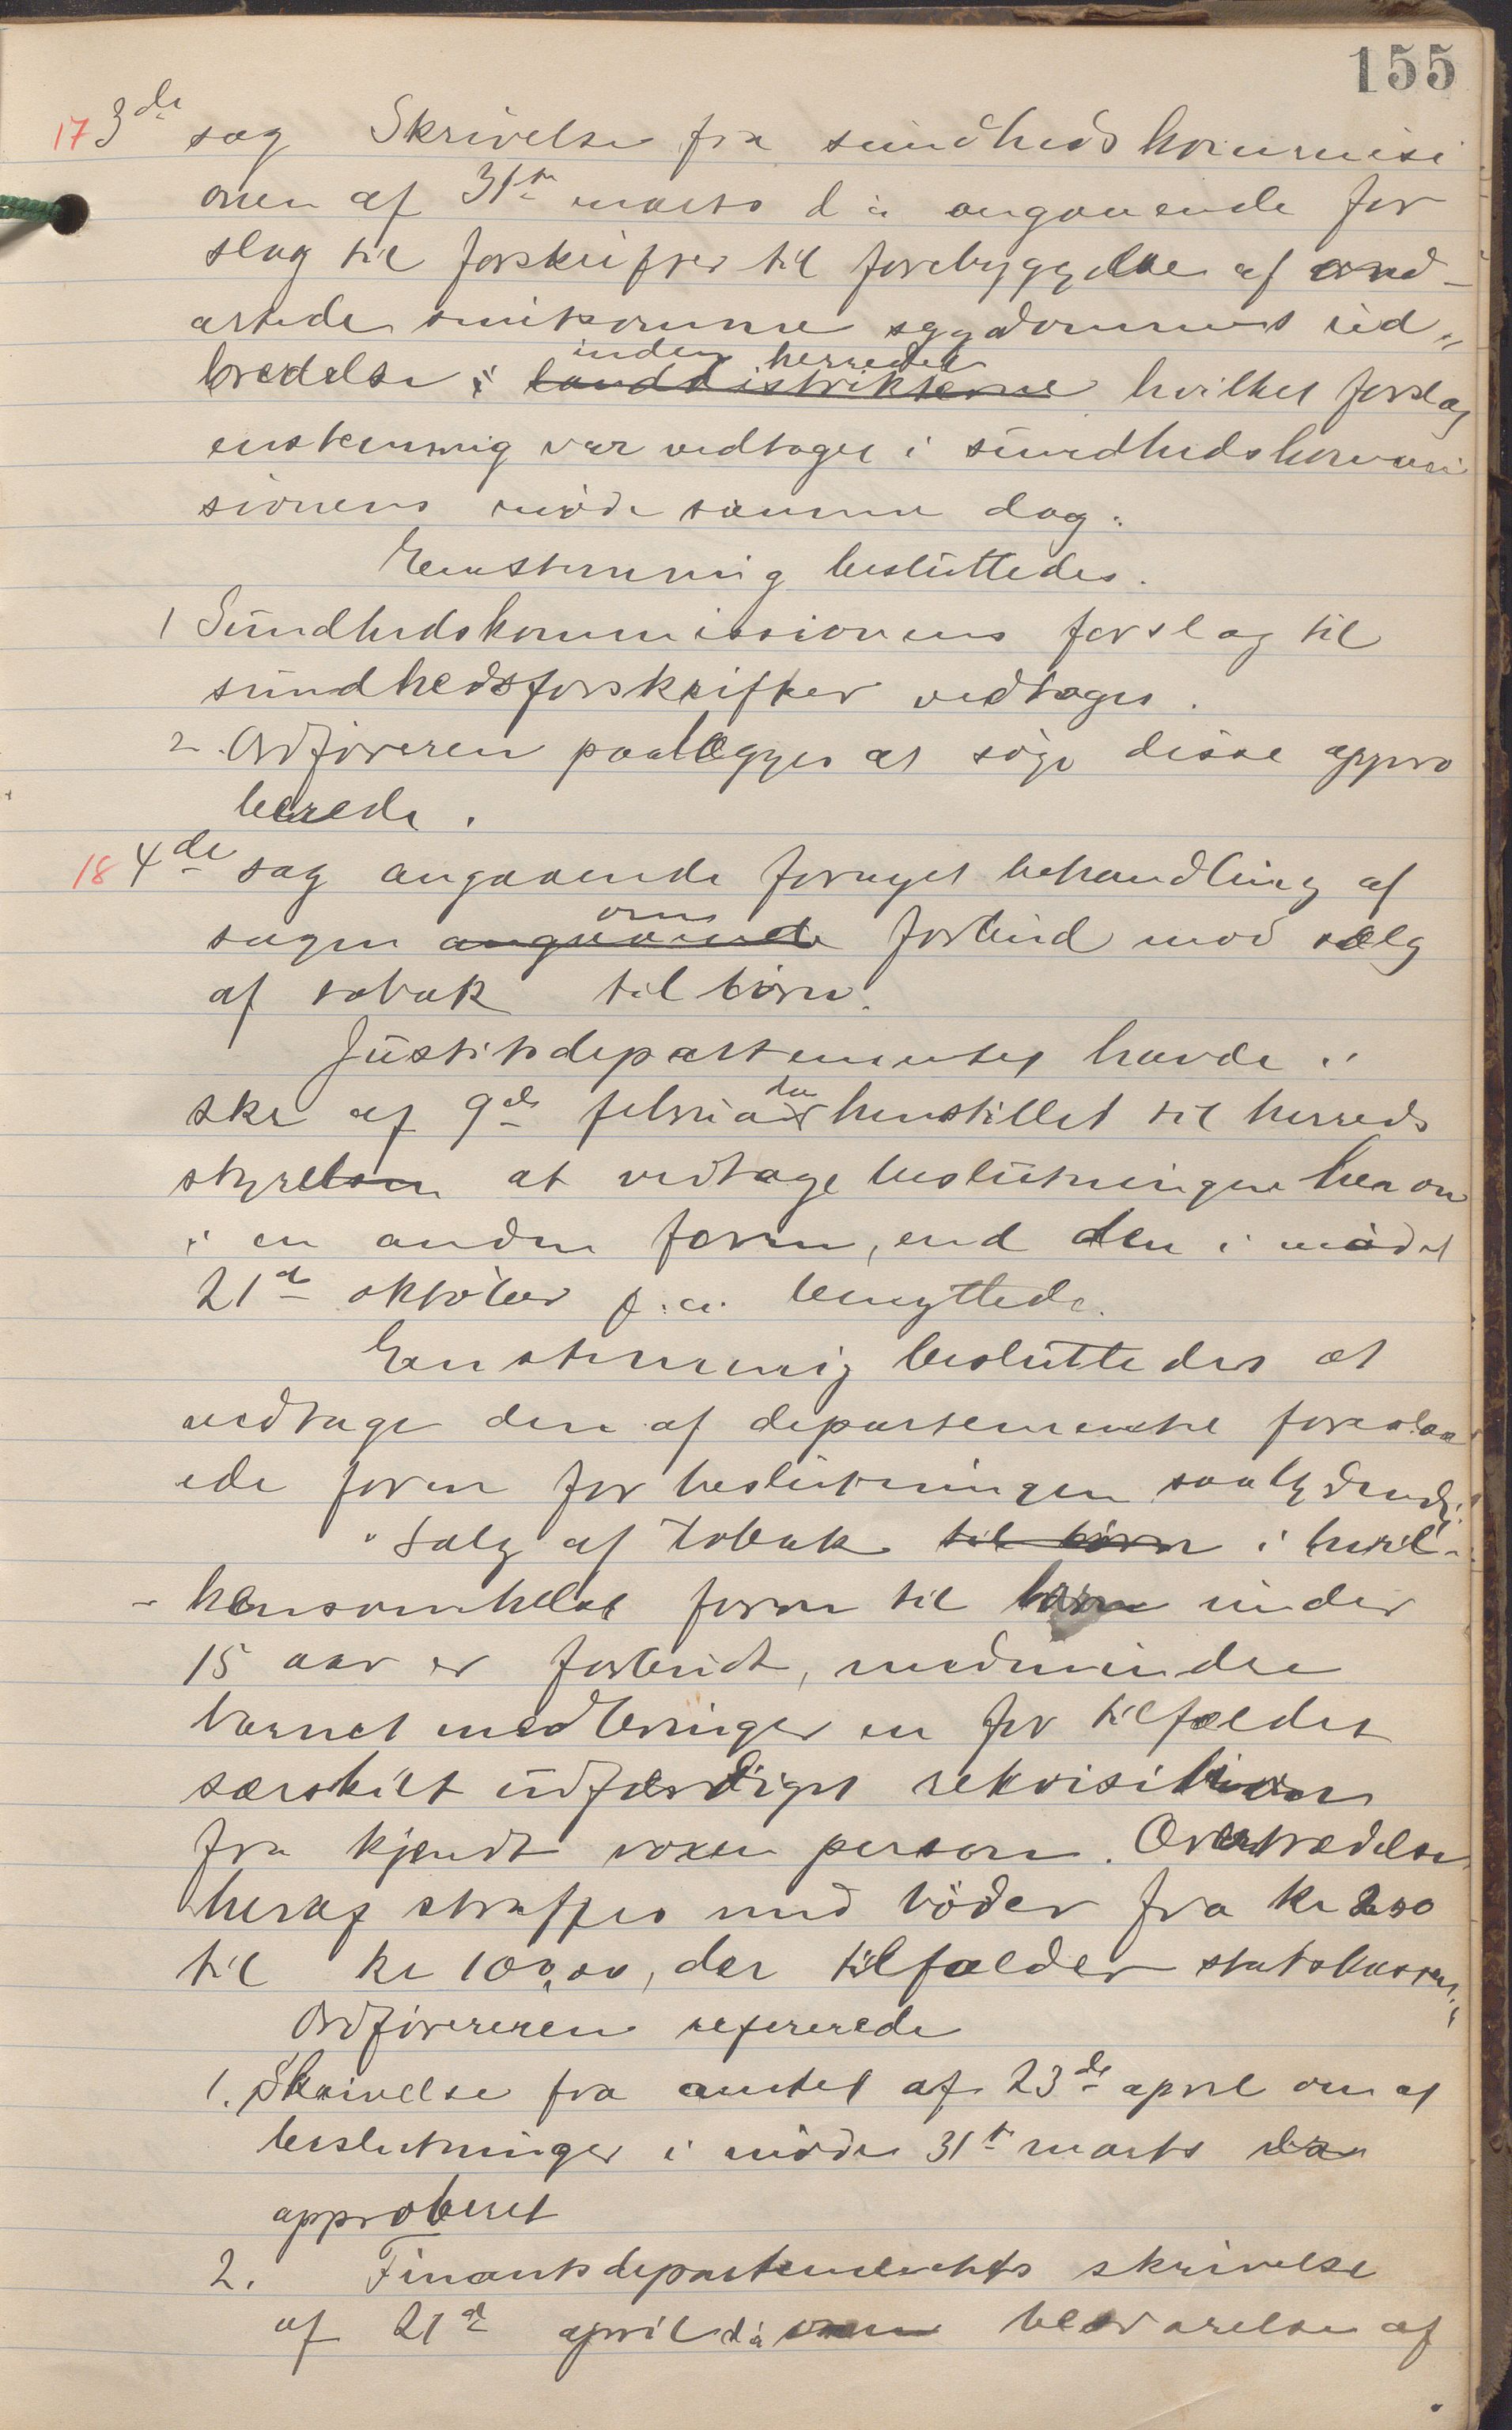 155
17 3de sag Skrivelse fra sundhedskommisi
onen af 31te marts d a angaaende for
slag til forskrifter til forebyggelse af ond-
artede smitsomme sygdommers ud„
bredelse i landdistrikterne inden herredet hvilket forslag
enstemmig var vedtaget i sundhedskommi
sionens møde samme dag.
Enstemmig besluttedes.
1 Sundhedskommissionens forslag til
sundhedsforskrifter vedtages.
2. Ordføreren paalægges at søge disse appro
berede.
18 4de sag angaaende fornyet behandling af
sagen angaaende om forbud mod salg
af tobak til børn.
Justitsdepartementet havde i
skr af 9de februar da henstillet til herreds
styrelsen at vedtage beslutningen herom
i en anden form, end den i mødet
21de oktober f.a. benyttede.
Enstemmig besluttedes at
vedtage den af departementet foreslaa
ede form for beslutningen saalydende:
"Salg af tobak til børn i hvil-
-kensomhelst form til børn under
15 aar er forbudt, medmindre
barnet medbringer en for tilfældet
særskilt udfærdiget rekvisition
fra kjendt voxen person. Overtrædelse
heraf straffes med bøder fra kr 2.00
til kr 100,00, der tilfalder statskassen."
Ordføreren refererede
1. Skrivelse fra amtet af 23de april om at
beslutninger i møde 31te marts da
approberet
2. Finantsdepartementets skrivelse
af 21de april d a om besvarelse af